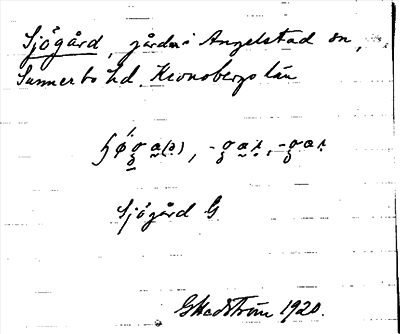 Sjögård, gårdar i Angelstad sn,
Sunnerbo hd. Kronobergs län
Sjögård G
GHedström 1920.